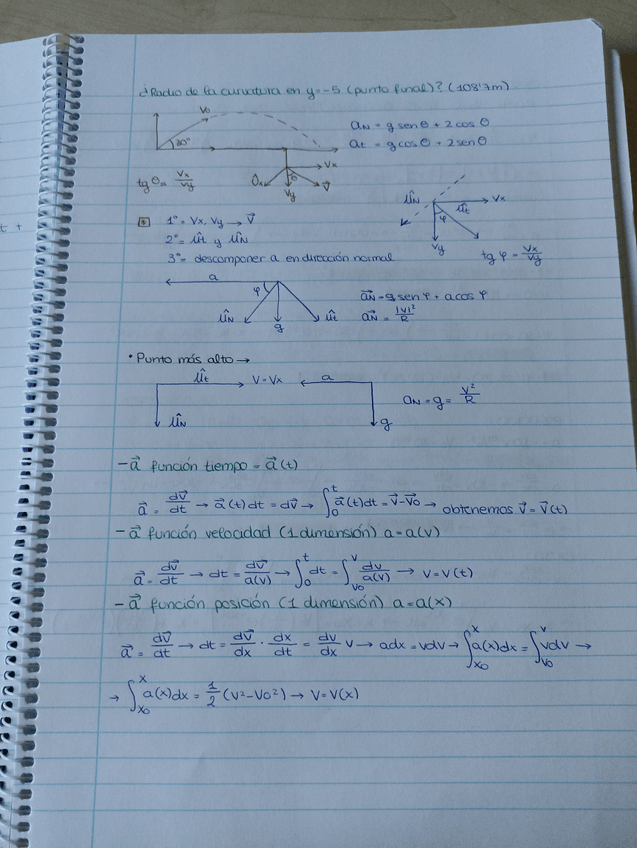 ¿Radio de la curvatura en y=-5 (punto final)? (108'7m)
V₀
30°
aN = g senθ + 2 cosθ
at = g cosθ + 2 senθ
Vx
θ
Vy
V⃗
tg θ = Vx/Vy
t +
1º = Vx, Vy → V⃗
2º = ût y ûN
3º = descomponer a en dirección normal
ûN
Vx
ût
φ
Vy
tg φ = Vx/Vy
a
φ
ûN
g
ût
a⃗N = g sen φ + a cos φ
a⃗N = |V|²/R
• Punto más alto →
ût
V = Vx
ûN
a
g
aN = g = V²/R
- a⃗ función tiempo = a⃗(t)
a⃗ = dv⃗/dt → a⃗(t)dt = dv⃗ → ∫₀ᵗ a⃗(t)dt = V⃗-V⃗₀ → obtenemos V⃗ = V⃗(t)
- a⃗ función velocidad (1 dimensión) a = a(v)
a⃗ = dv⃗/dt → dt = dv⃗/a(v) → ∫₀ᵗ dt = ∫ᵥ₀ᵛ dv/a(v) → V = V(t)
- a⃗ función posición (1 dimensión) a = a(x)
a⃗ = dv⃗/dt → dt = dv⃗/dx · dx/dt = dv/dx V → adx = vdv → ∫ₓ₀ˣ a(x)dx = ∫ᵥ₀ᵛ vdv →
→ ∫ₓ₀ˣ a(x)dx = 1/2 (V²-V₀²) → V = V(x)